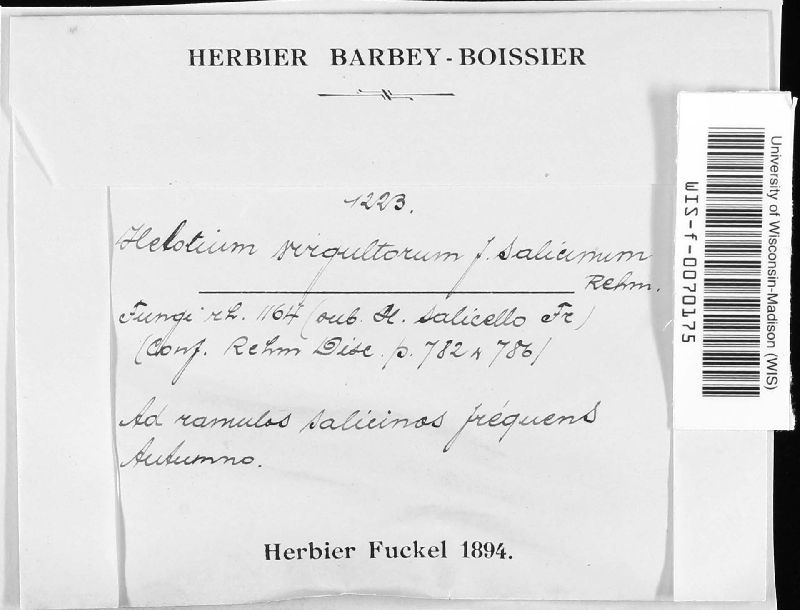 HERBIER BARBEY-BOISSIER
1223.
Helotium virgultorum f. salicinum
Rehm.
Fungi rh. 1164 (sub. H. salicello Fr)
(Conf. Rehm Disc. p. 782 & 786)
Ad ramulos salicinos fréquens
Autumno.
Herbier Fuckel 1894.
University of Wisconsin-Madison (WIS)
WIS-f-0070175